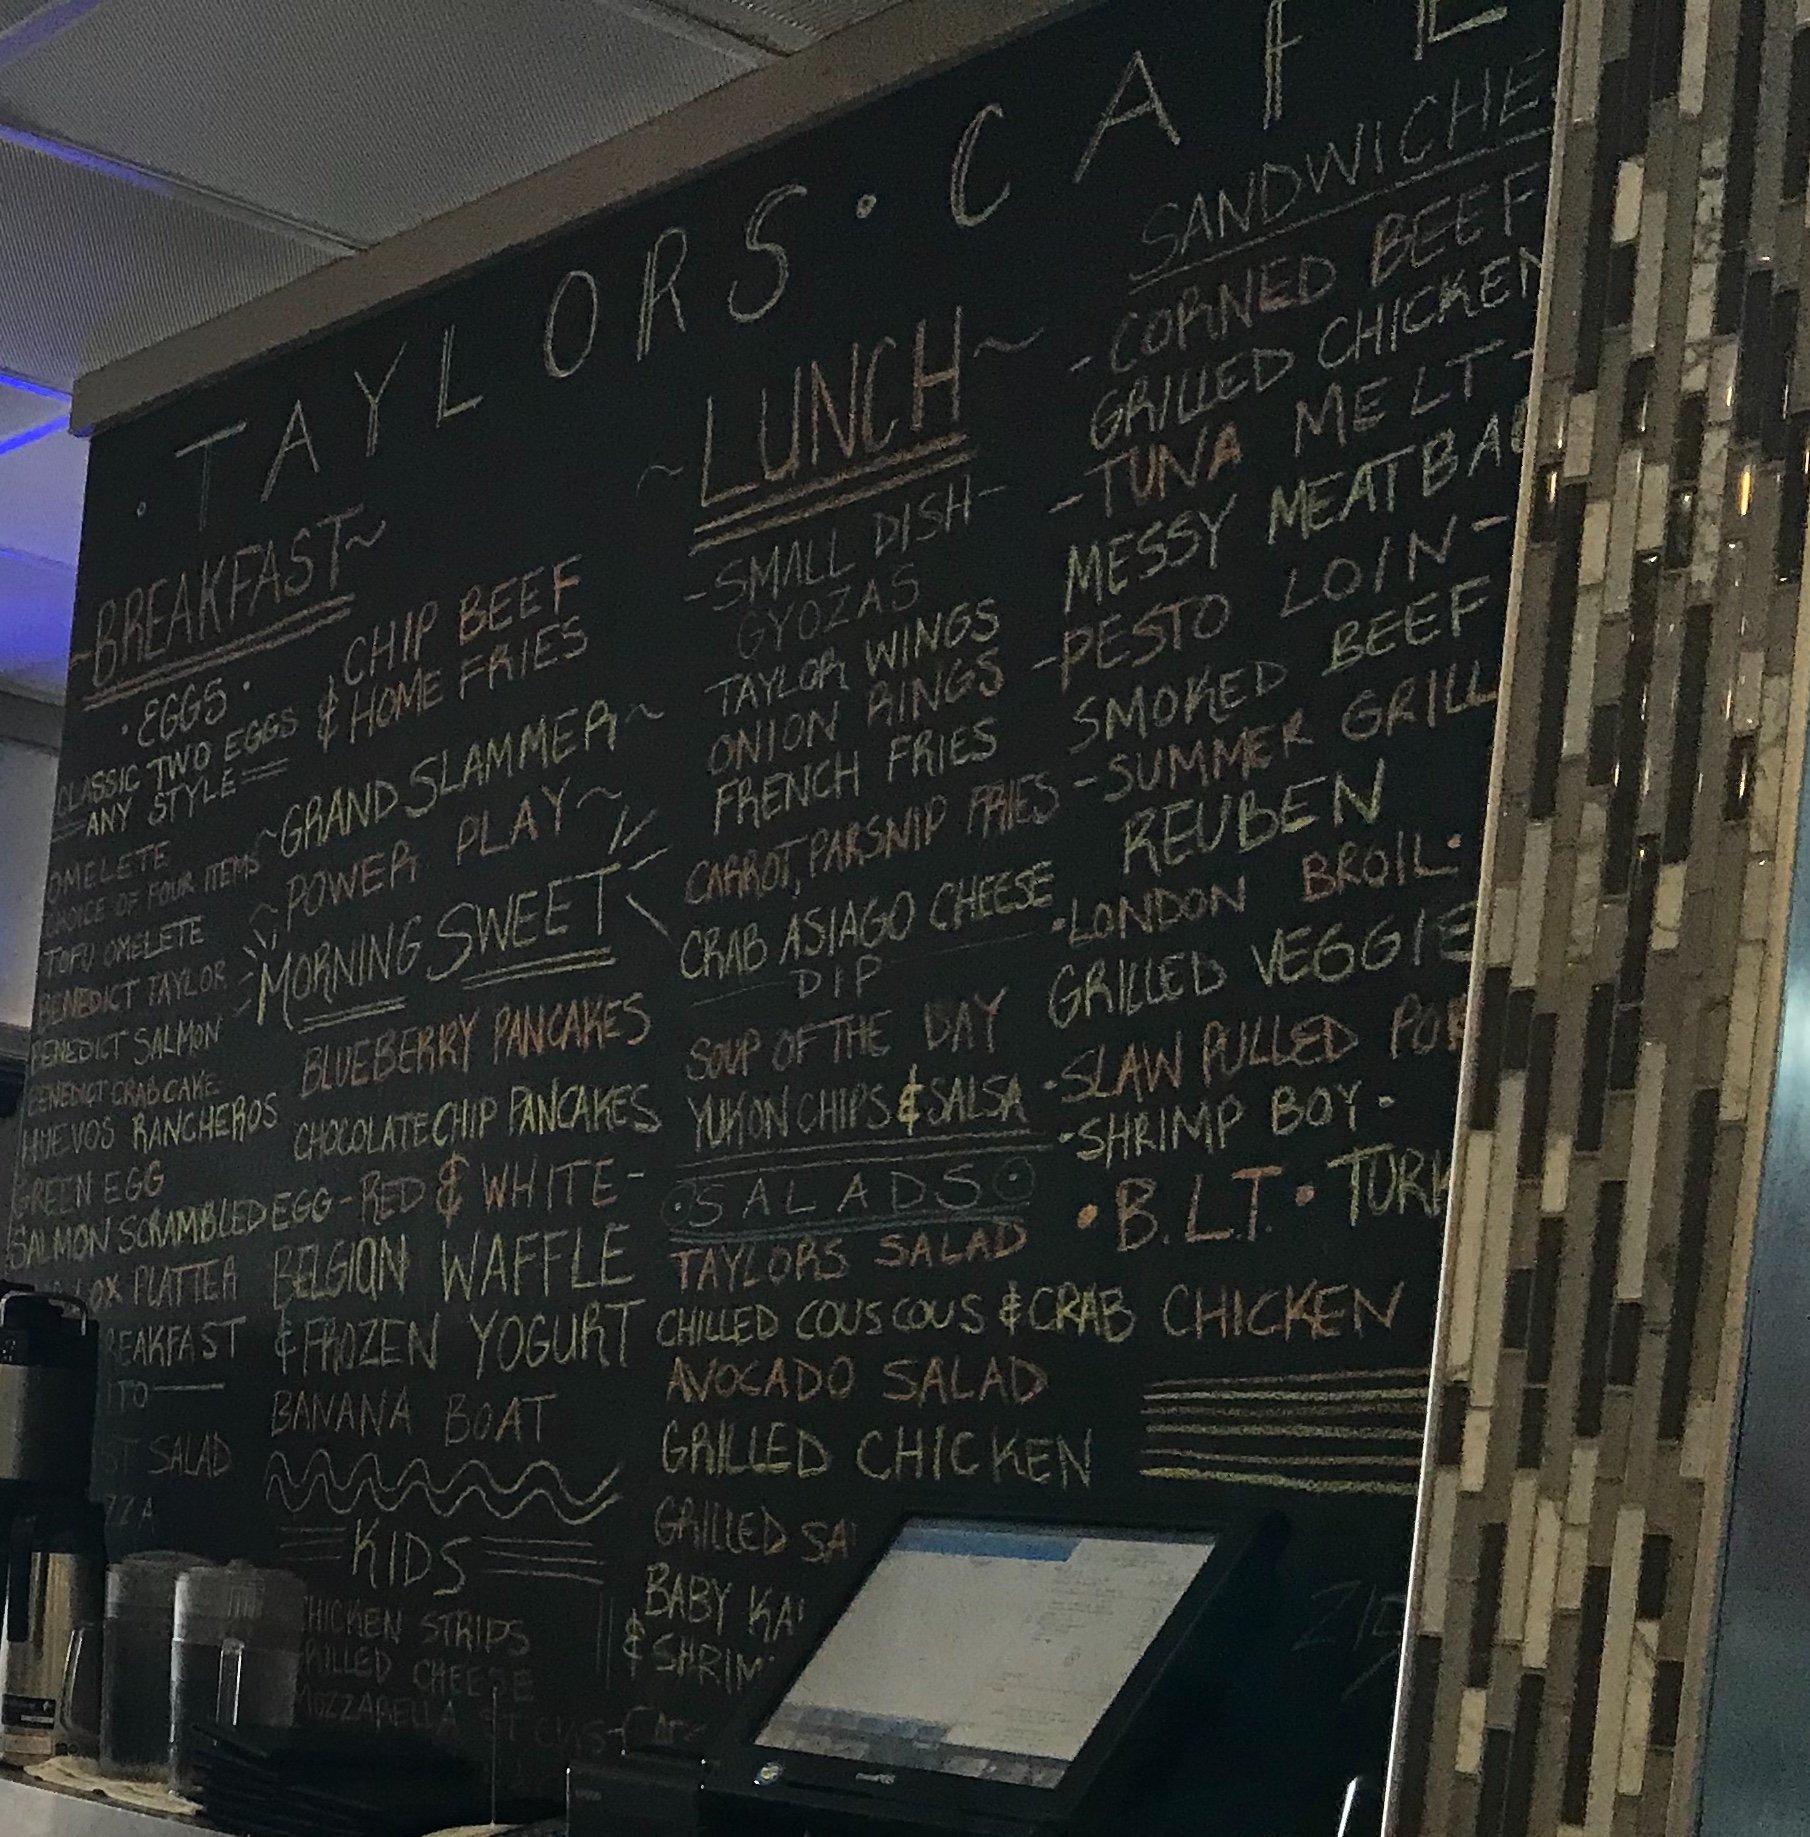 · TAYLORS · CAFE
~BREAKFAST~
· EGGS ·
CLASSIC TWO EGGS
ANY STYLE
OMELETE
CHOICE OF FOUR ITEMS
TOFU OMELETE
BENEDICT TAYLOR
BENEDICT SALMON
BENEDICT CRABCAKE
HUEVOS RANCHEROS
GREEN EGG
SALMON SCRAMBLED EGG
OX PLATTER
REAKFAST
ITO
ST SALAD
ZZA
CHIP BEEF
& HOME FRIES
~GRAND SLAMMER~
~POWER PLAY~
MORNING SWEET
BLUEBERRY PANCAKES
CHOCOLATE CHIP PANCAKES
-RED & WHITE-
BELGIAN WAFFLE
& FROZEN YOGURT
BANANA BOAT
KIDS
CHICKEN STRIPS
GRILLED CHEESE
MOZZARELLA
~LUNCH~
-SMALL DISH-
GYOZAS
TAYLOR WINGS
ONION RINGS
FRENCH FRIES
CARROT, PARSNIP FRIES
CRAB ASIAGO CHEESE
DIP
SOUP OF THE DAY
YUKON CHIPS & SALSA
·SALADS·
TAYLORS SALAD
CHILLED COUSCOUS & CRAB
AVOCADO SALAD
GRILLED CHICKEN
GRILLED SA
BABY KA
& SHRIM
SANDWICHE
-CORNED BEEF
GRILLED CHICKEN
-TUNA MELT-
MESSY MEATBA
-PESTO LOIN-
SMOKED BEEF
-SUMMER GRILL
REUBEN
·LONDON BROIL·
GRILLED VEGGIE
·SLAW PULLED POR
·SHRIMP BOY-
·B.L.T.· TURK
CHICKEN